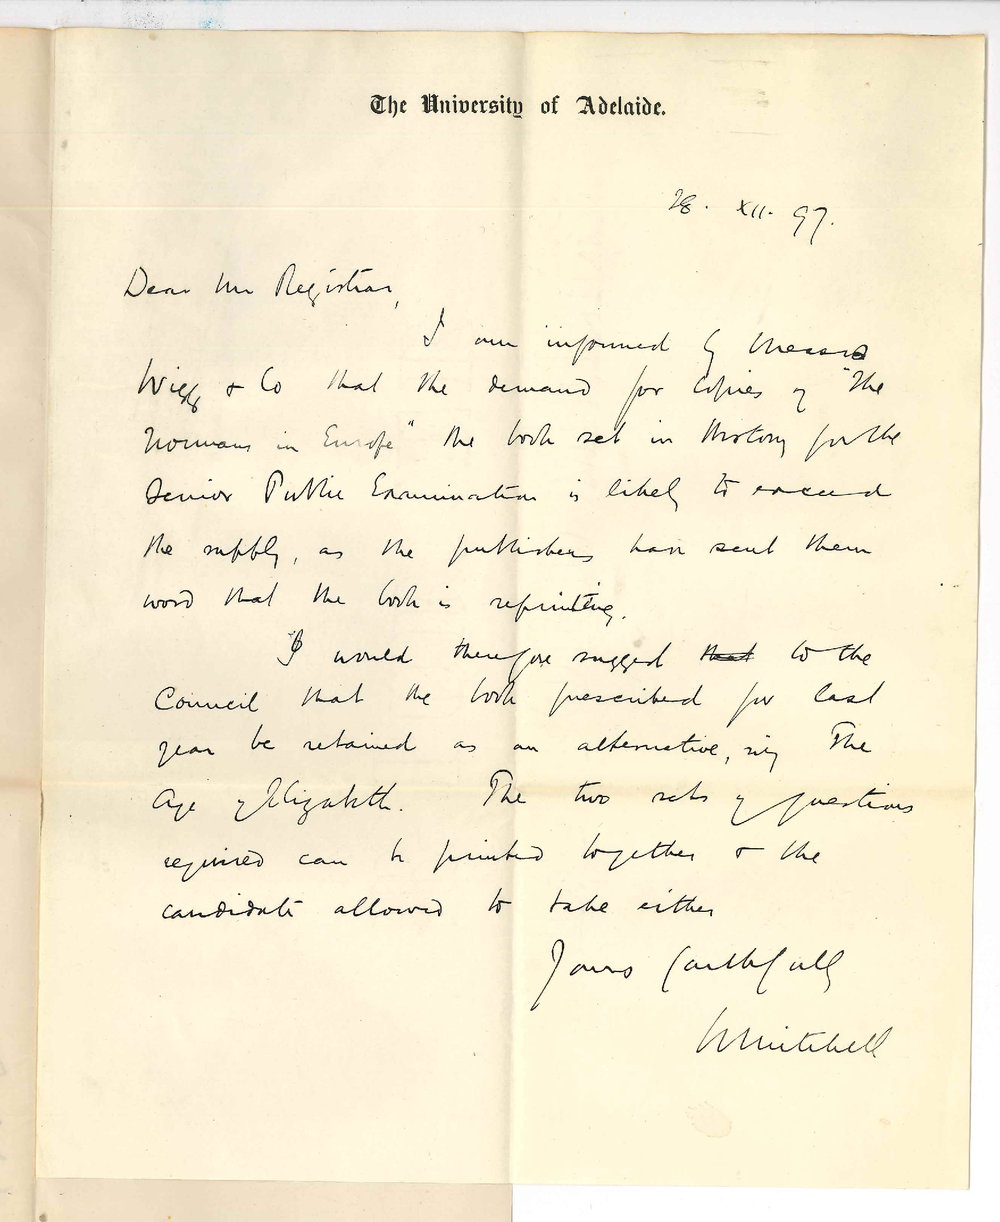 The University of Adelaide.
28. XII. 97.
Dear Mr Registrar,
I am informed by Messrs
Wigg & Co that the demand for copies of "The
Normans in Europe" the book set in History for the
Senior Public Examination is likely to exceed
the supply, as the publishers have sent them
word that the book is reprinting.
I would therefore suggest that to the
Council that the book prescribed for last
year be retained as an alternative, viz The
Age of Elizabeth. The two sets of questions
required can be printed together & the
candidate allowed to take either
Yours faithfully
W Mitchell